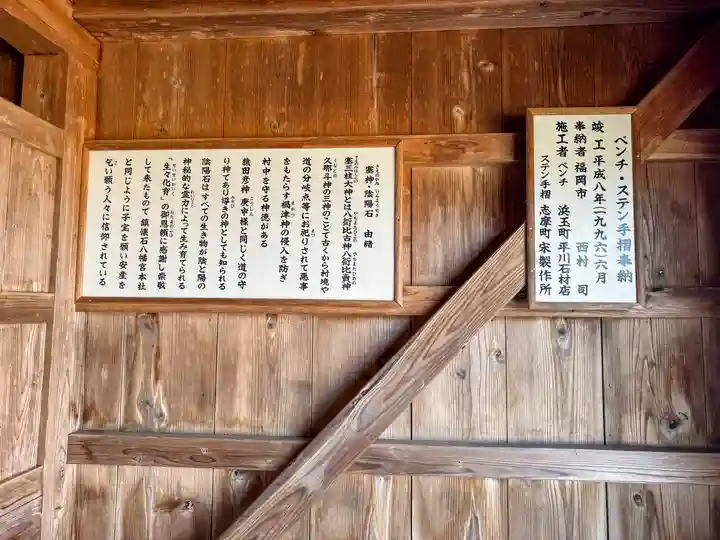 ベンチ・ステン手摺奉納
竣工 平成八年(一九九六)六月
奉納者 福岡市 西村 司
施工者 ベンチ 浜玉町 平川石材店
ステン手摺 志摩町 宋製作所
塞神・陰陽石 由緒
塞三柱大神とは八街比古神八街比賣神
久那斗神の三神のことで古くから村境や
道の分岐点等にお祀りされて悪事
をもたらす禍津神の侵入を防ぎ
村中を守る神徳がある
猿田彦神 庚申様と同じく道の守
り神であり導きの神としても知られる
陰陽石はすべての生き物が陰と陽の
神秘的な霊力によって生み育てられる
「生々化育」の御恩頼に感謝し崇敬
して来たもので 鎮懐石八幡宮本社
と同じように子宝を願い安産を
乞い願う人々に信仰されている